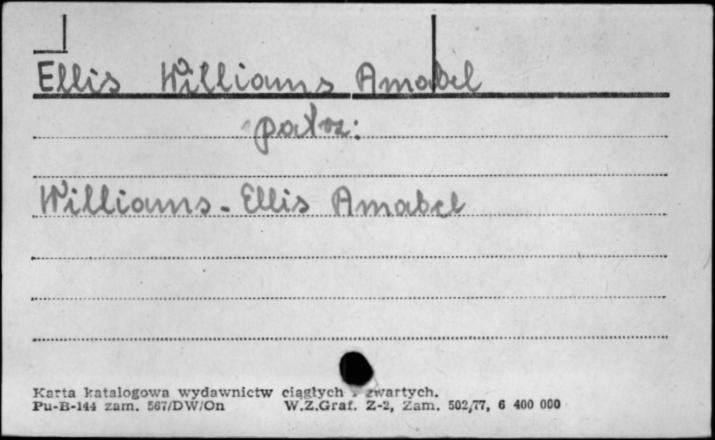 Ellis Williams Amabel
patrz:
Williams - Ellis Amabel
Karta katalogowa wydawnictw ciągłych i zwartych.
Pu-B-144 zam. 567/DW/On W.Z.Graf. Z-2, Zam. 502/77, 6 400 000